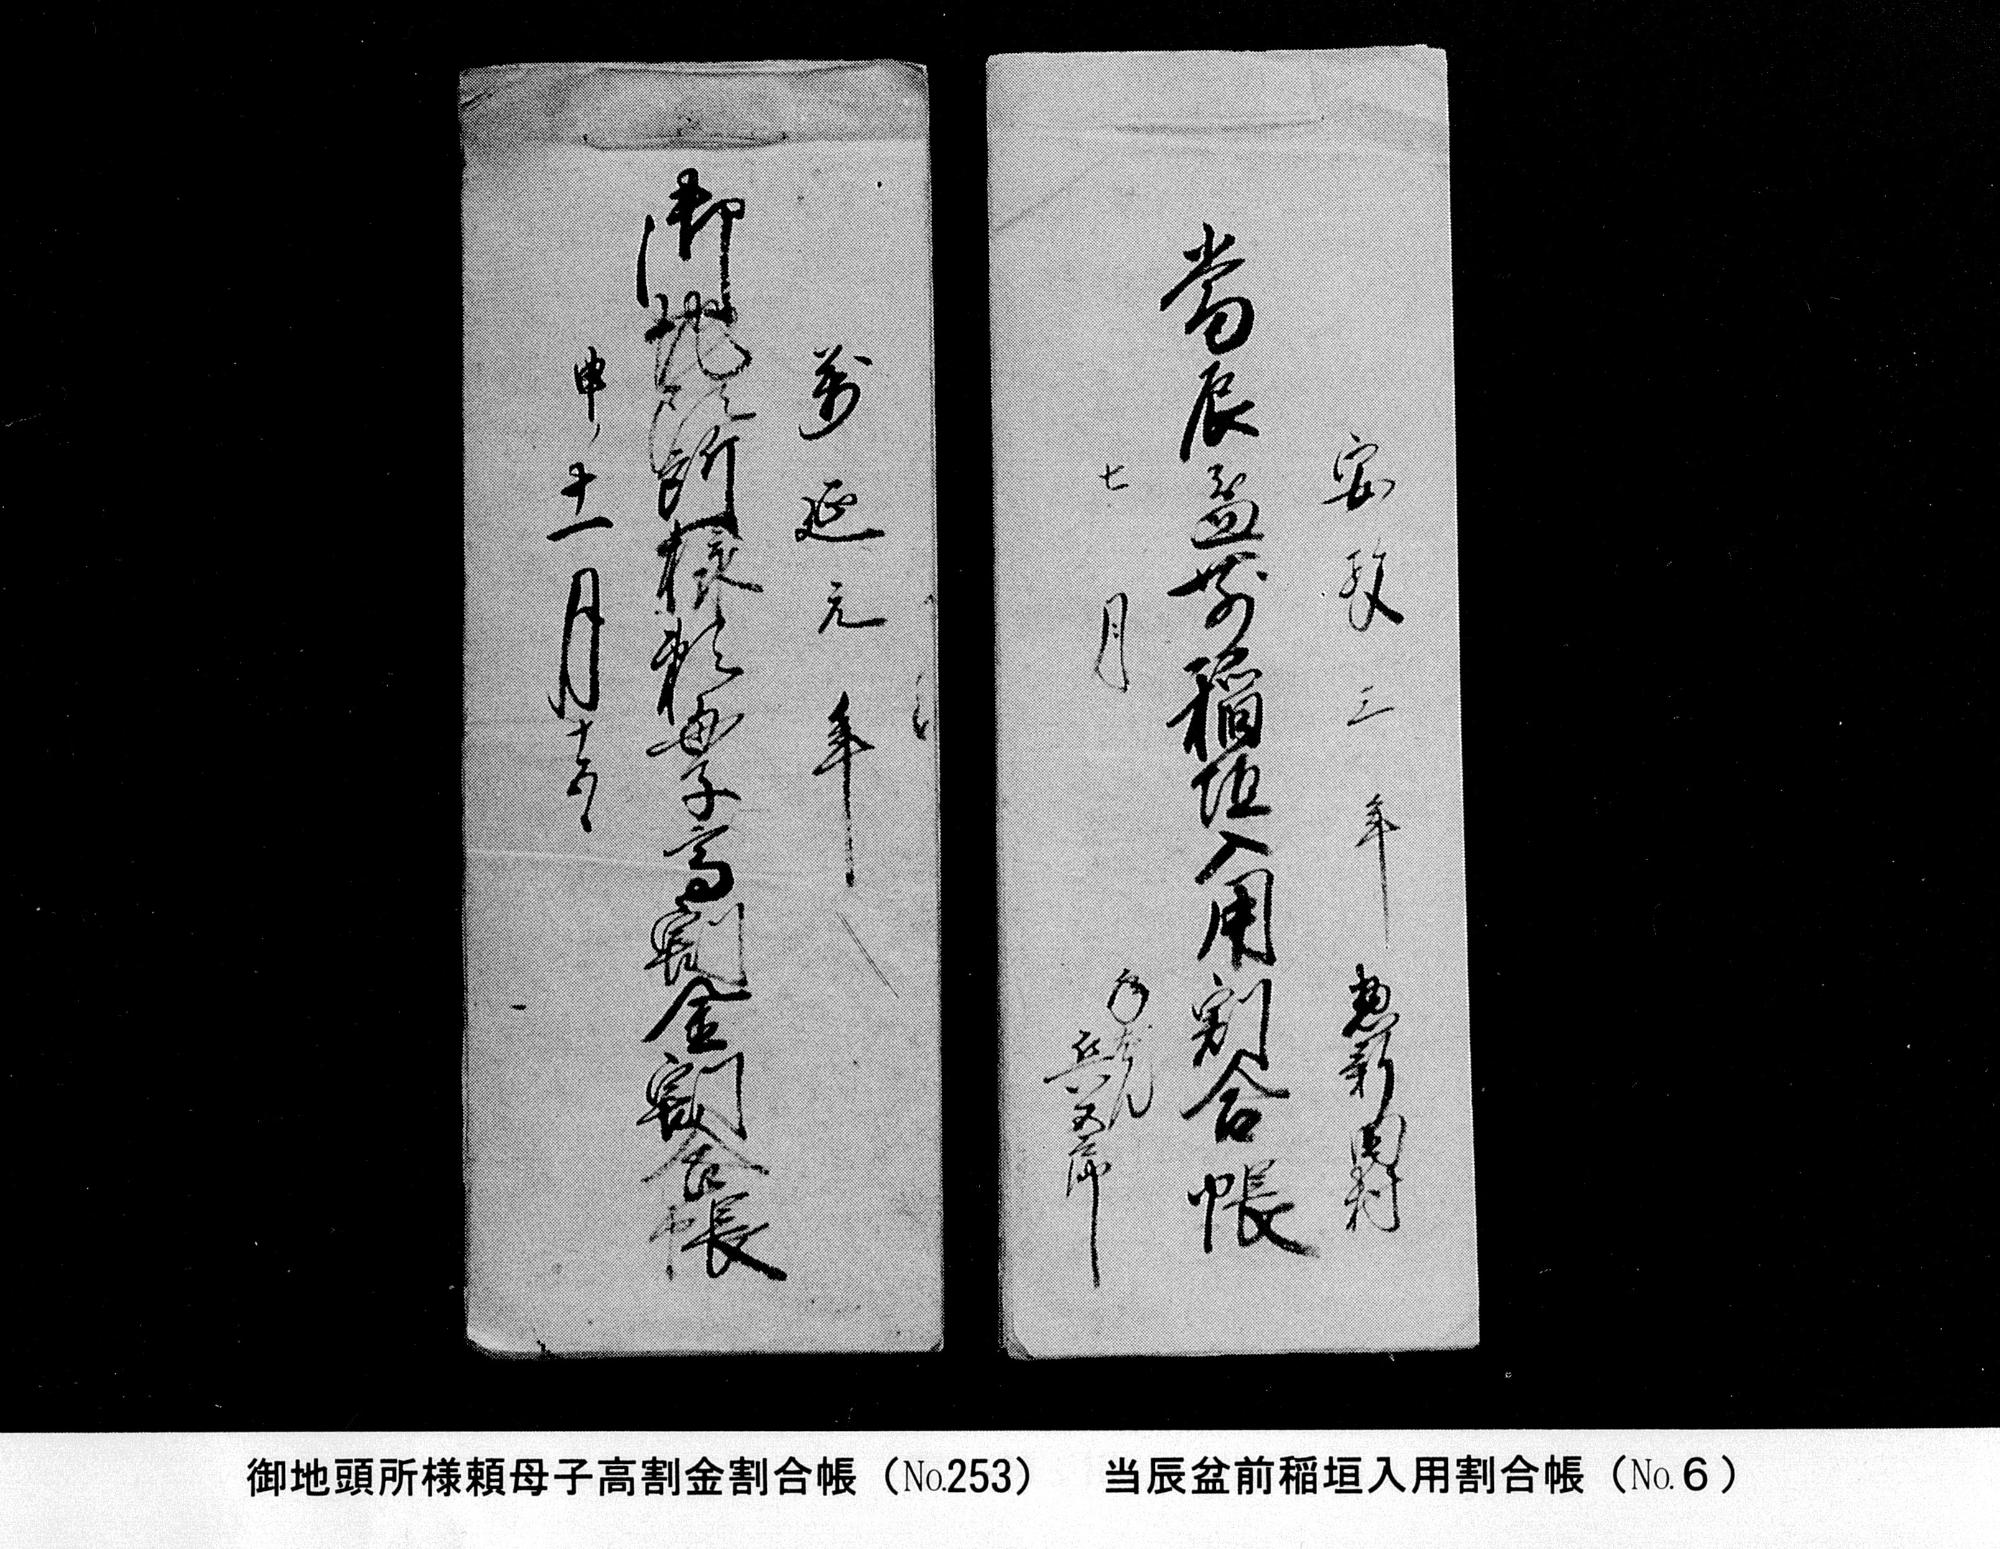 安政三年 惣新田村
當辰盆前稲垣入用割合帳
七月
兵五郎
萬延元年
御地頭所様頼母子高割金割合帳
申十一月十五日
御地頭所様頼母子高割金割合帳（No.253）
当辰盆前稲垣入用割合帳（No.6）